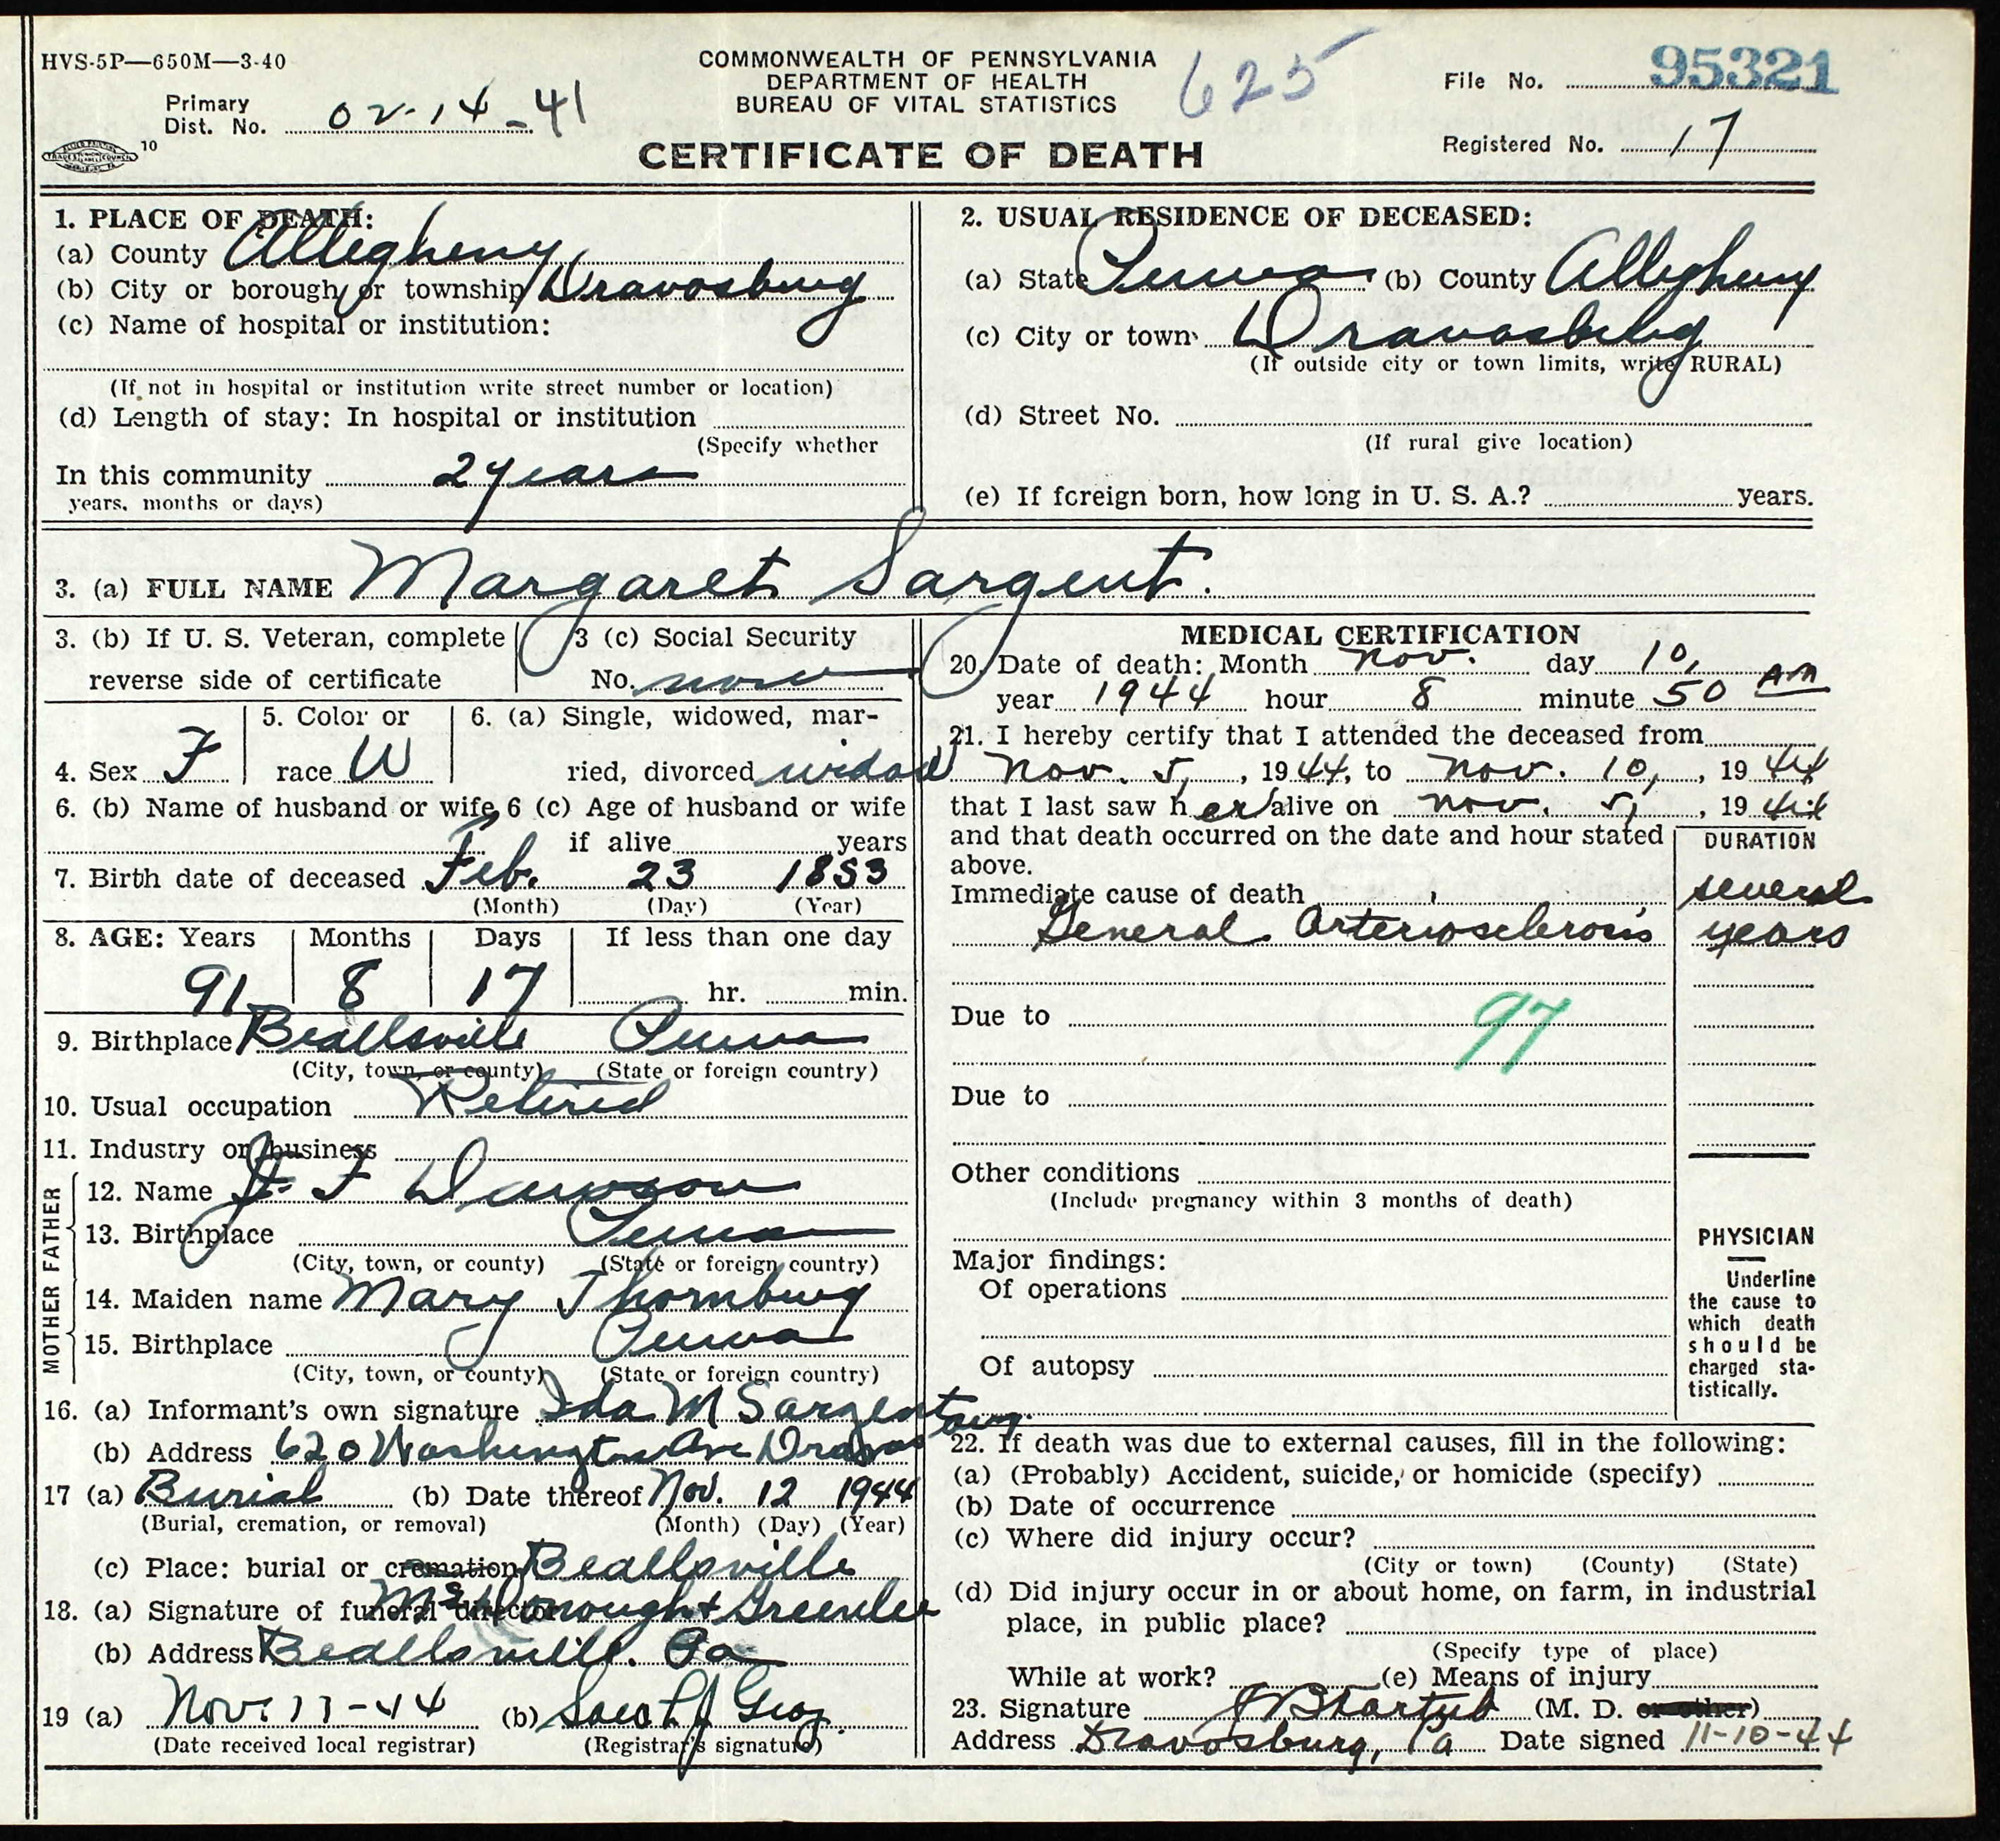 HVS-5P—650M—3-40
COMMONWEALTH OF PENNSYLVANIA
DEPARTMENT OF HEALTH
BUREAU OF VITAL STATISTICS
625
File No. 95321
Primary
Dist. No. 02-14-41
Registered No. 17
10
CERTIFICATE OF DEATH
1. PLACE OF DEATH:
(a) County Allegheny
(b) City or borough or township Dravosburg
(c) Name of hospital or institution:
(If not in hospital or institution write street number or location)
(d) Length of stay: In hospital or institution
(Specify whether
In this community 2 years
years, months or days)
2. USUAL RESIDENCE OF DECEASED:
(a) State Penna (b) County Allegheny
(c) City or town Dravosburg
(If outside city or town limits, write RURAL)
(d) Street No.
(If rural give location)
(e) If foreign born, how long in U. S. A.? years.
3. (a) FULL NAME Margaret Sargent.
3. (b) If U. S. Veteran, complete
reverse side of certificate
3 (c) Social Security
No. none
4. Sex F
5. Color or
race W
6. (a) Single, widowed, mar-
ried, divorced widow
6. (b) Name of husband or wife 6 (c) Age of husband or wife
if alive years
7. Birth date of deceased Feb. 23 1853
(Month) (Day) (Year)
8. AGE: Years Months Days If less than one day
91 8 17 hr. min.
9. Birthplace Beallsville Penna
(City, town, or county) (State or foreign country)
10. Usual occupation Retired
11. Industry or business
FATHER
12. Name J. F Dawson
13. Birthplace Penna
(City, town, or county) (State or foreign country)
MOTHER
14. Maiden name Mary Thornburg
15. Birthplace Penna
(City, town, or county) (State or foreign country)
16. (a) Informant's own signature Ida M Sargent
(b) Address 620 Washington Ave Dravosburg.
17 (a) Burial (b) Date thereof Nov. 12 1944
(Burial, cremation, or removal) (Month) (Day) (Year)
(c) Place: burial or cremation Beallsville
18. (a) Signature of funeral director McDonough + Greenlee
(b) Address Beallsville. Pa
19 (a) Nov. 11-44 (b)
(Date received local registrar) (Registrar's signature)
MEDICAL CERTIFICATION
20. Date of death: Month Nov. day 10,
year 1944 hour 8 minute 50 AM
21. I hereby certify that I attended the deceased from
Nov. 5, , 1944, to Nov. 10, , 1944
that I last saw her alive on Nov. 5, , 1944
and that death occurred on the date and hour stated
above.
DURATION
Immediate cause of death several
General Arteriosclerosis years
Due to 97
Due to
Other conditions
(Include pregnancy within 3 months of death)
Major findings:
Of operations
Of autopsy
PHYSICIAN
Underline
the cause to
which death
should be
charged sta-
tistically.
22. If death was due to external causes, fill in the following:
(a) (Probably) Accident, suicide, or homicide (specify)
(b) Date of occurrence
(c) Where did injury occur?
(City or town) (County) (State)
(d) Did injury occur in or about home, on farm, in industrial
place, in public place?
(Specify type of place)
While at work? (e) Means of injury
23. Signature (M. D. or other)
Address Dravosburg, Pa Date signed 11-10-44